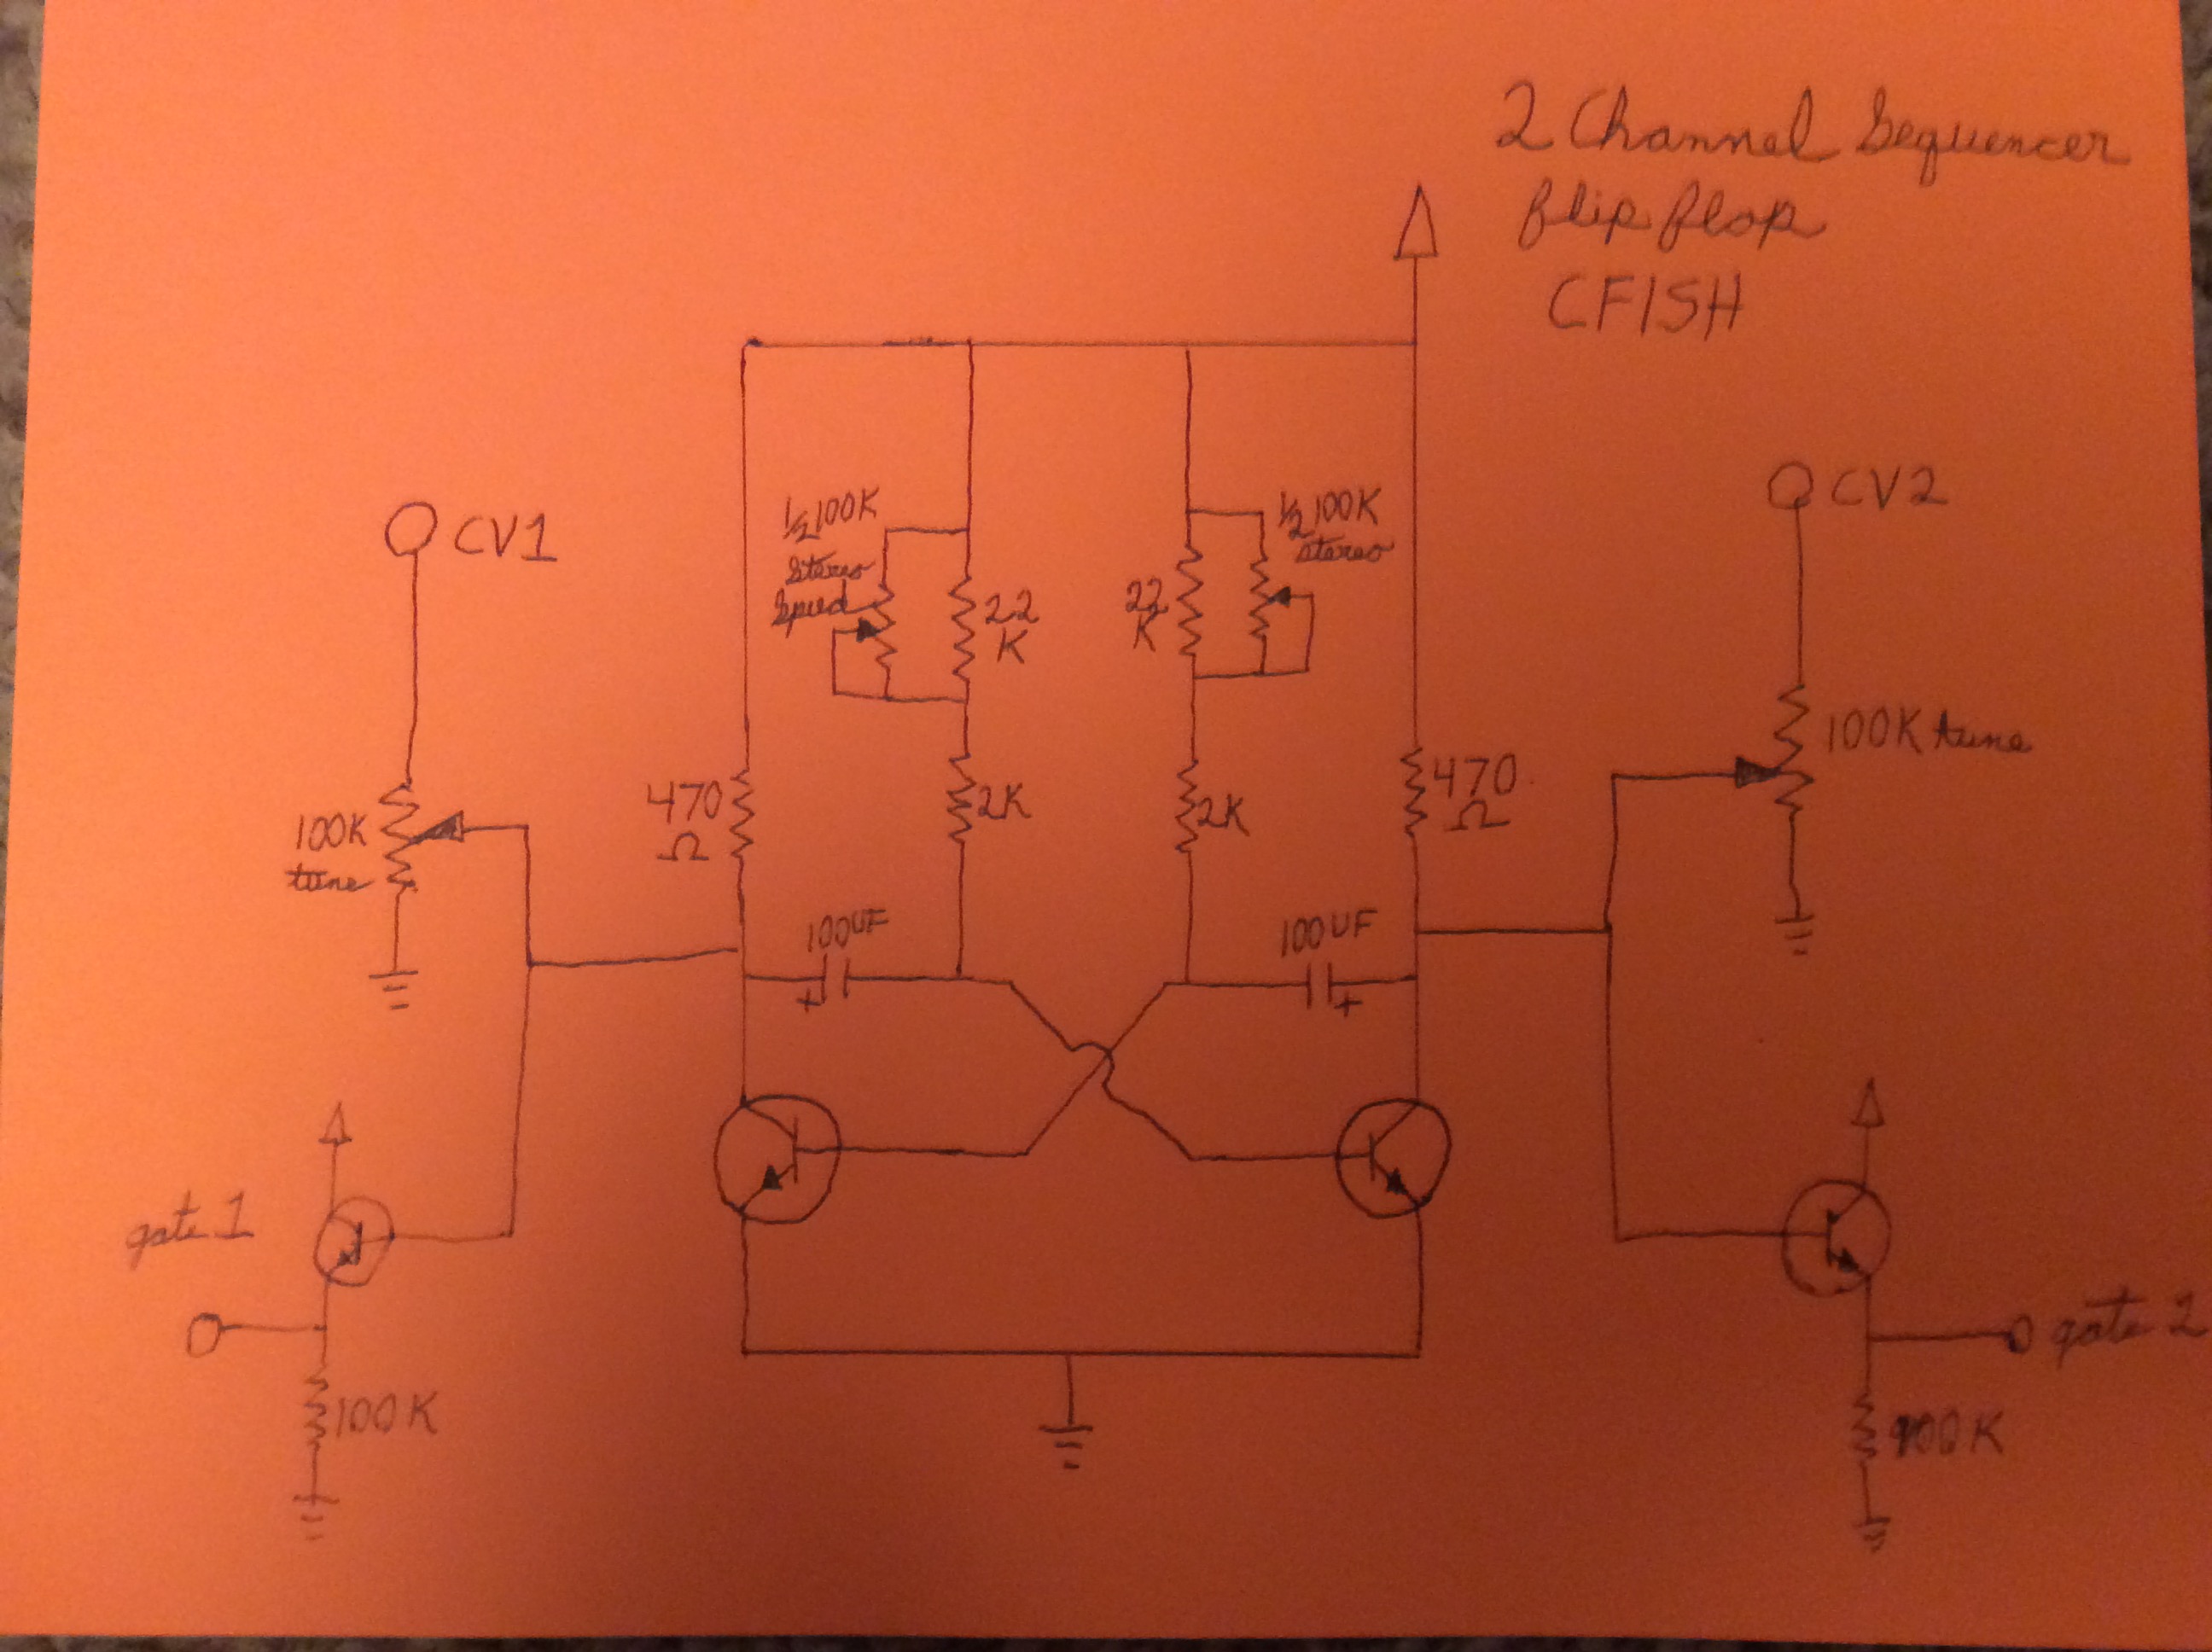 2 Channel Sequencer
flip flop
CFISH
CV1
100K
tune
gate 1
100K
470
Ω
1/2 100K
Stereo
Speed
22
K
2K
100UF
+
22
K
2K
1/2 100K
stereo
470
Ω
100UF
+
CV2
100K tune
gate 2
100K